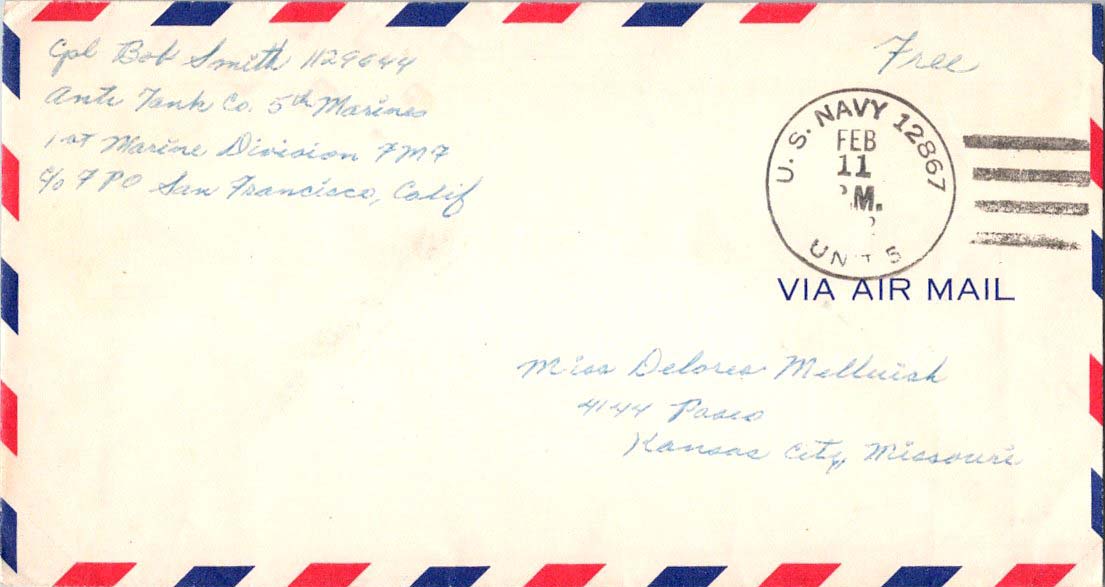 Cpl Bob Smith 1129644
Anti Tank Co. 5th Marines
1st Marine Division FMF
c/o FPO San Francisco, Calif
Free
U. S. NAVY 12867
FEB
11
.M.
UNIT 5
VIA AIR MAIL
Miss Delores Melluish
4144 Paseo
Kansas City, Missouri